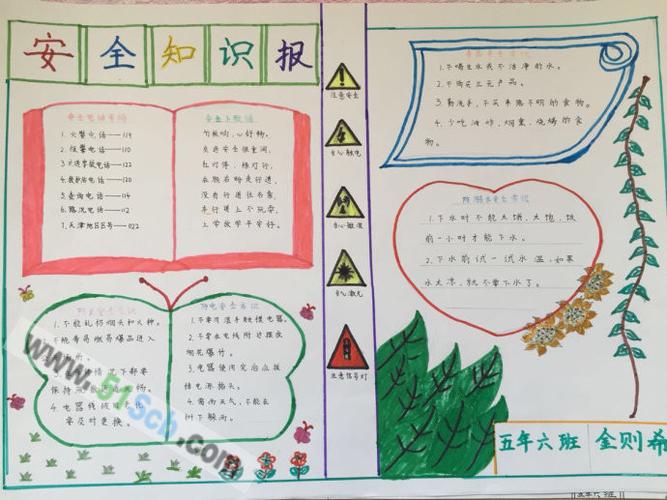 安全知识报
安全电话号码
1.火警电话——119
2.报警电话——110
3.交通事故电话——122
4.救护站电话——120
5.查询电话——114
6.路况电话——112
7.天津地区区号——022
交通安全很重要,
红灯停,绿灯行,
没有行道往右靠,
行道上不玩耍,
上学放学平安好。
注意安全
当心触电
当心激光
注意信号灯
1.不喝生水或不洁净的水。
2.不购买三无产品。
3.勤洗手,不买来路不明的食物。
4.少吃油炸、烟熏、烧烤的食
物。
防溺水安全常识
1.下水时不能太饿、太饱,饭
前一小时才能下水。
2.下水前试一试水温,如果
水太凉,就不要下水了。
1.不能乱扔烟头和火种。
保持
4.电器线
要及时更换。
防电安全常识
1.不要用湿手触摸电器。
2.不要在电线附近摆放
烟花爆竹。
3.电器使用完后应拔
掉电源插头。
4.雷雨天气,不能在
树下躲雨。
www.51scb.com
五年六班 金则希
五年六班